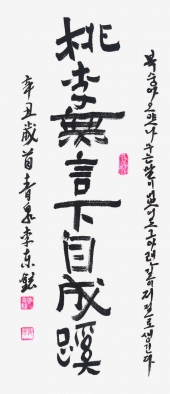 桃李無言下自成蹊
복숭아 오얏나무는 말이 없어도 그 아래 길이 저절로 생긴다
辛丑歲首青泉李东